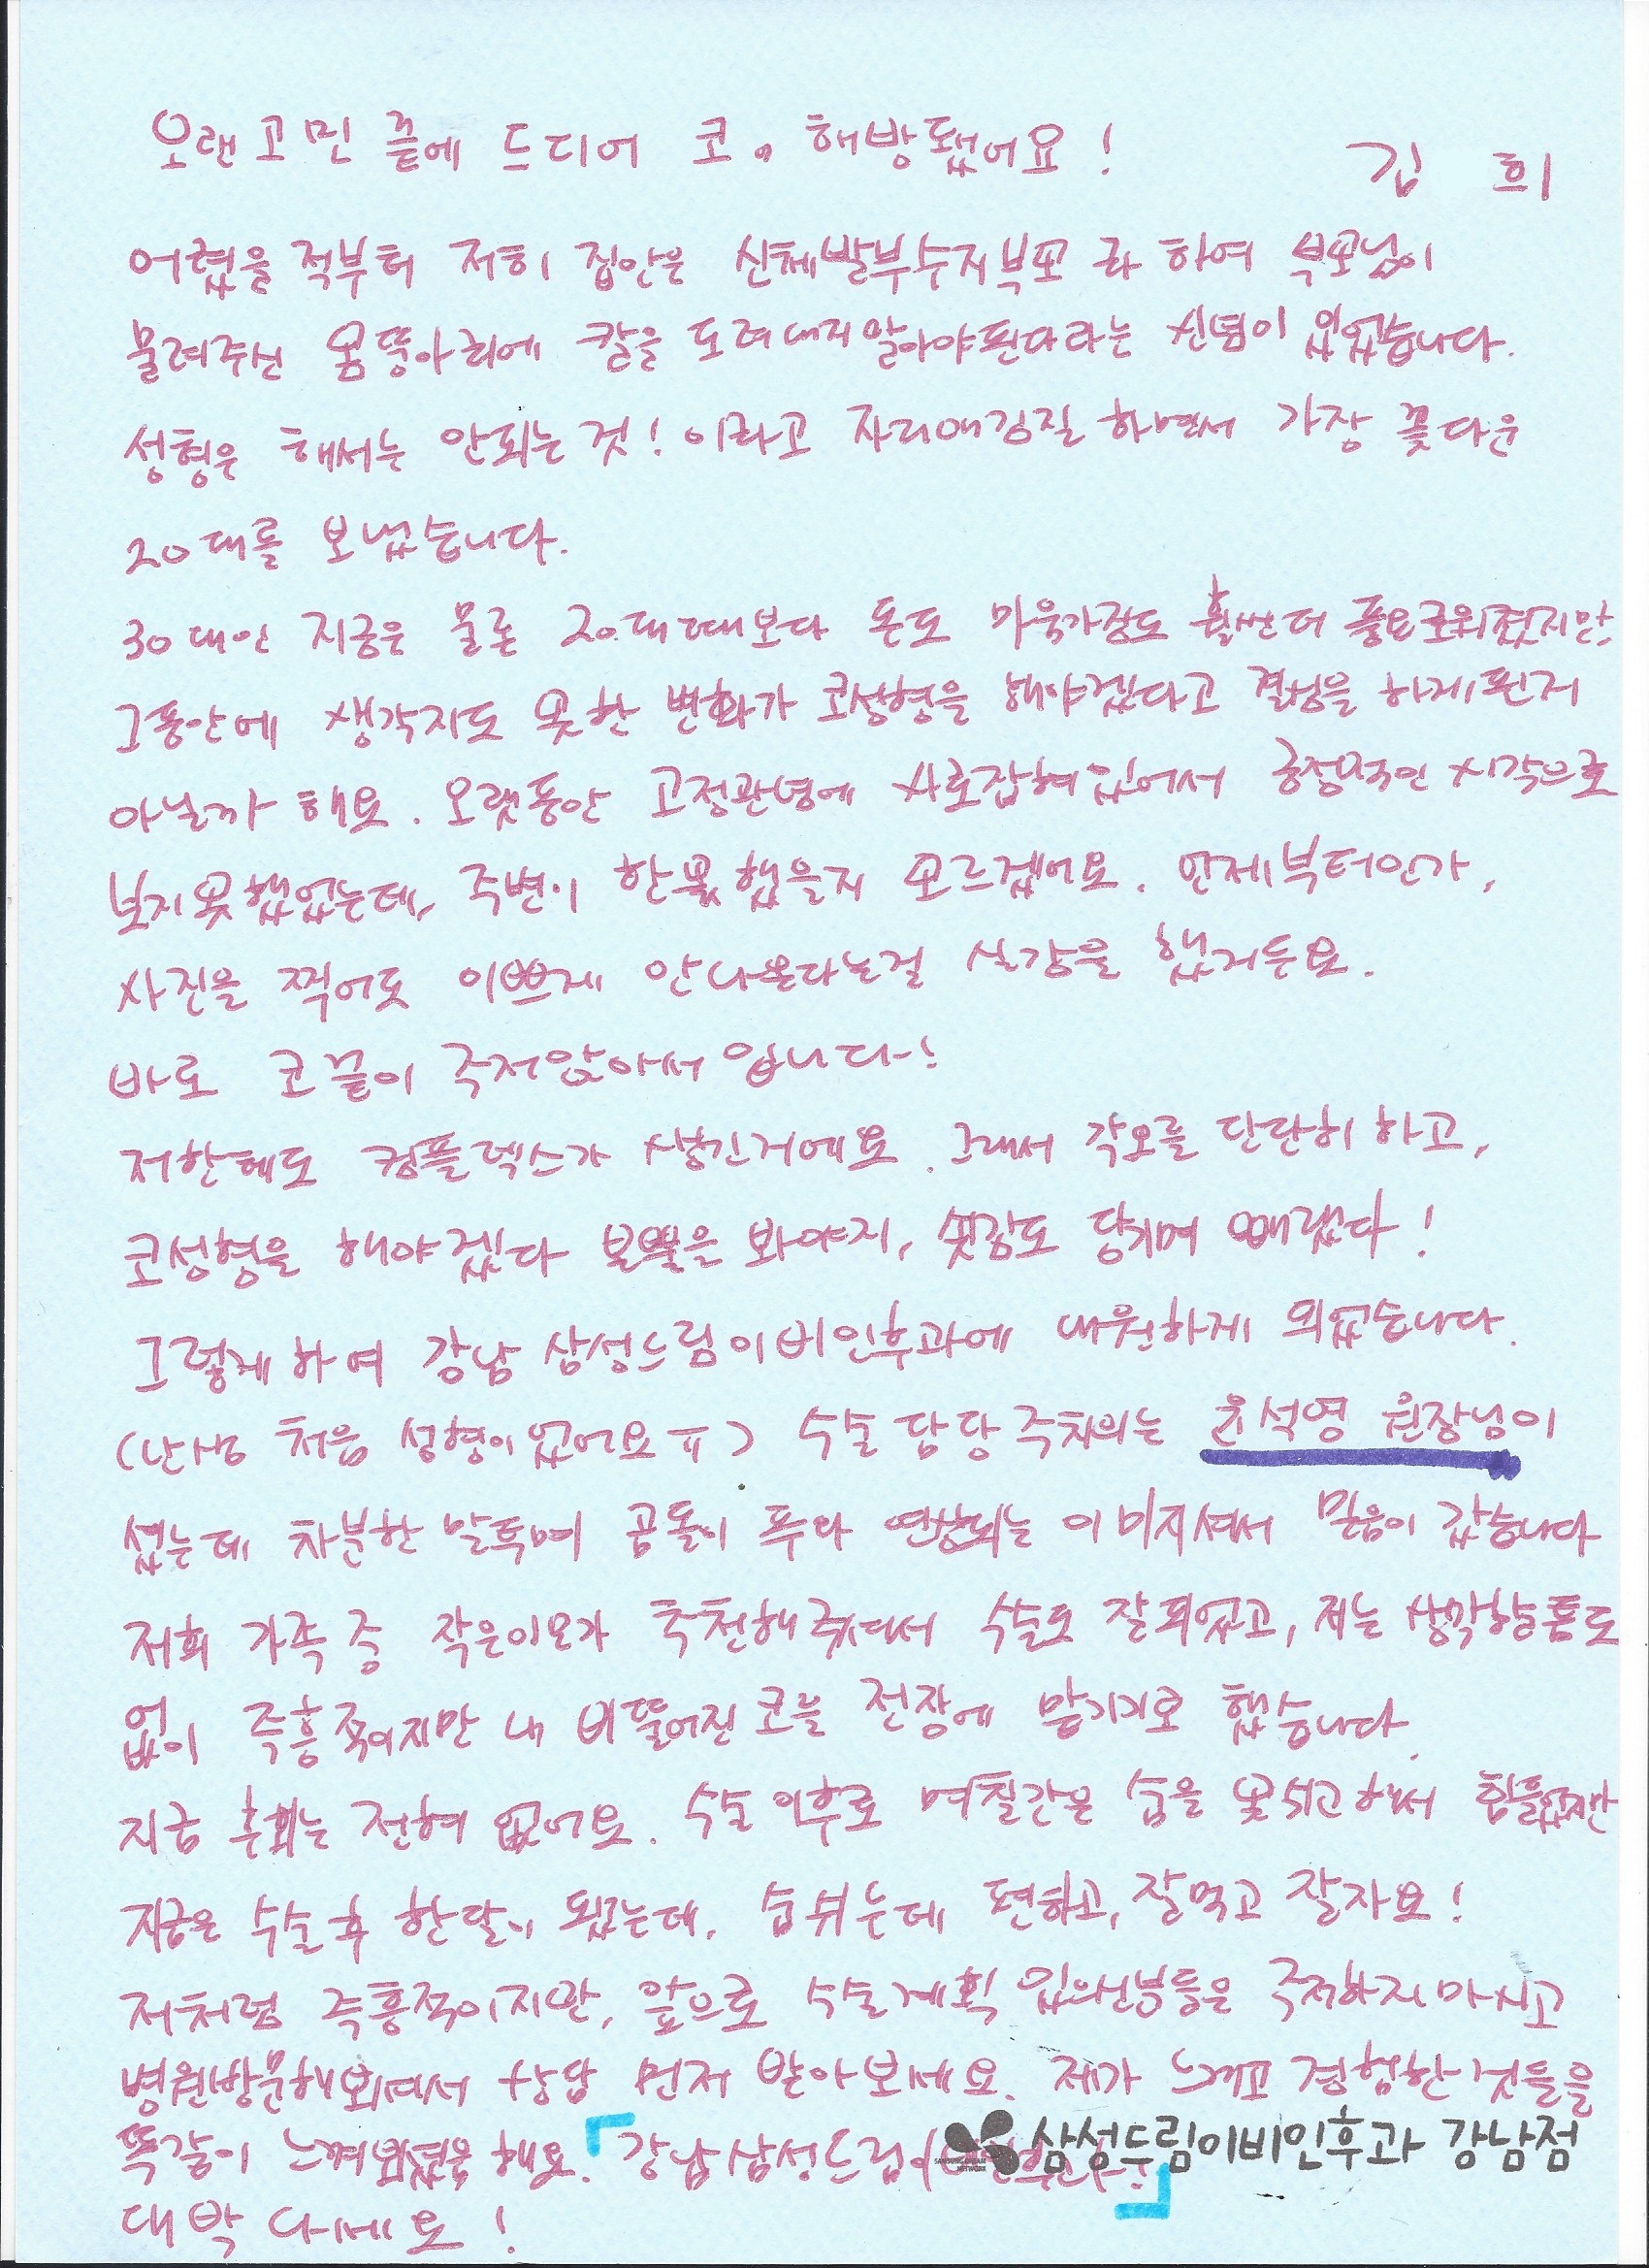 오랜 고민 끝에 드디어 코. 해방됐어요!
김 희
어렸을 적부터 저희 집안은 신체발부수지부모 라 하여 부모님이
물려주신 몸뚱아리에 칼을 도려내지말아야된다라는 신념이 있었습니다.
성형은 해서는 안되는 것! 이라고 자리매김질 하면서 가장 꽃다운
20대를 보냈습니다.
30대인 지금은 물론 20대때보다 돈도 마음가짐도 훨씬더 풍요로워졌지만,
그동안에 생각지도 못한 변화가 코성형을 해야겠다고 결정을 하게된거
아닐까 해요. 오랫동안 고정관념에 사로잡혀있어서 긍정적인 시각으로
보지못했었는데, 주변이 한몫했을지 모르겠어요. 언제부터인가,
사진을 찍어도 이쁘게 안나온다는걸 실감을 했거든요.
바로 코끝이 주저앉아서 입니다!
저한테도 컴플렉스가 생긴거에요. 그래서 각오를 단단히 하고,
코성형을 해야겠다 본때을 봐야지, 쇳뿔도 당기며 빼랬다!
그렇게하여 강남 삼성드림이비인후과에 내원하게 되었습니다.
(난생 처음 성형이었어요ㅠ) 수술 담당 주치의는 윤석영 원장님이
셨는데 차분한 말투며 곰돌이 푸와 연상되는 이미지셔서 믿음이 갔습니다
저희 가족 중 작은이모가 추천해주셔서 수술도 잘되었고, 저는 생각할틈도
없이 즉흥적이지만 내 비뚤어진 코를 전장에 맡기기로 했습니다.
지금 후회는 전혀 없어요. 수술 이후로 며칠간은 숨을 못쉬고해서 힘들었지만
지금은 수술 후 한달이 됐는데, 숨쉬는데 편하고, 잘먹고 잘자요!
저처럼 즉흥적이지만, 앞으로 수술계획 있으신분들은 주저하지마시고
병원방문해보셔서 상담 먼저 받아보세요. 제가 느끼고 경험한것들을
똑같이 느껴보셨음 해요. 「강남삼성드림이 」
삼성드림이비인후과 강남점
대박 나세요!